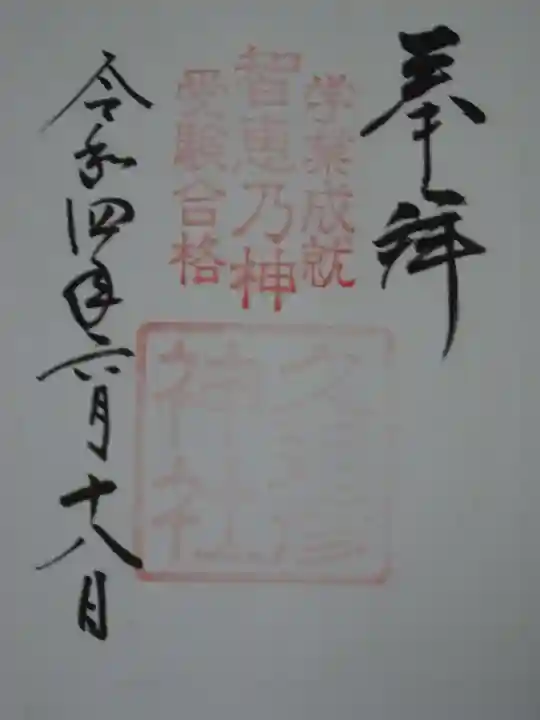 奉拝
学業成就
智恵乃神
受験合格
久延彦
神社
令和四年六月十八日